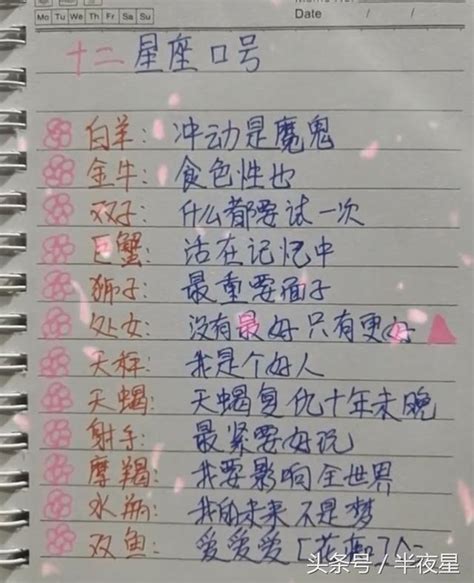 Mo Tu We Th Fr Sa Su
Date / /
十二星座口号
白羊：冲动是魔鬼
金牛：食色性也
双子：什么都要试一次
巨蟹：活在记忆中
狮子：最重要面子
处女：没有最好只有更好
天秤：我是个好人
天蝎：天蝎复仇十年未晚
射手：最紧要好玩
摩羯：我要影响全世界
水瓶：我的未来不是梦
双鱼：爱爱爱
头条号／半夜星